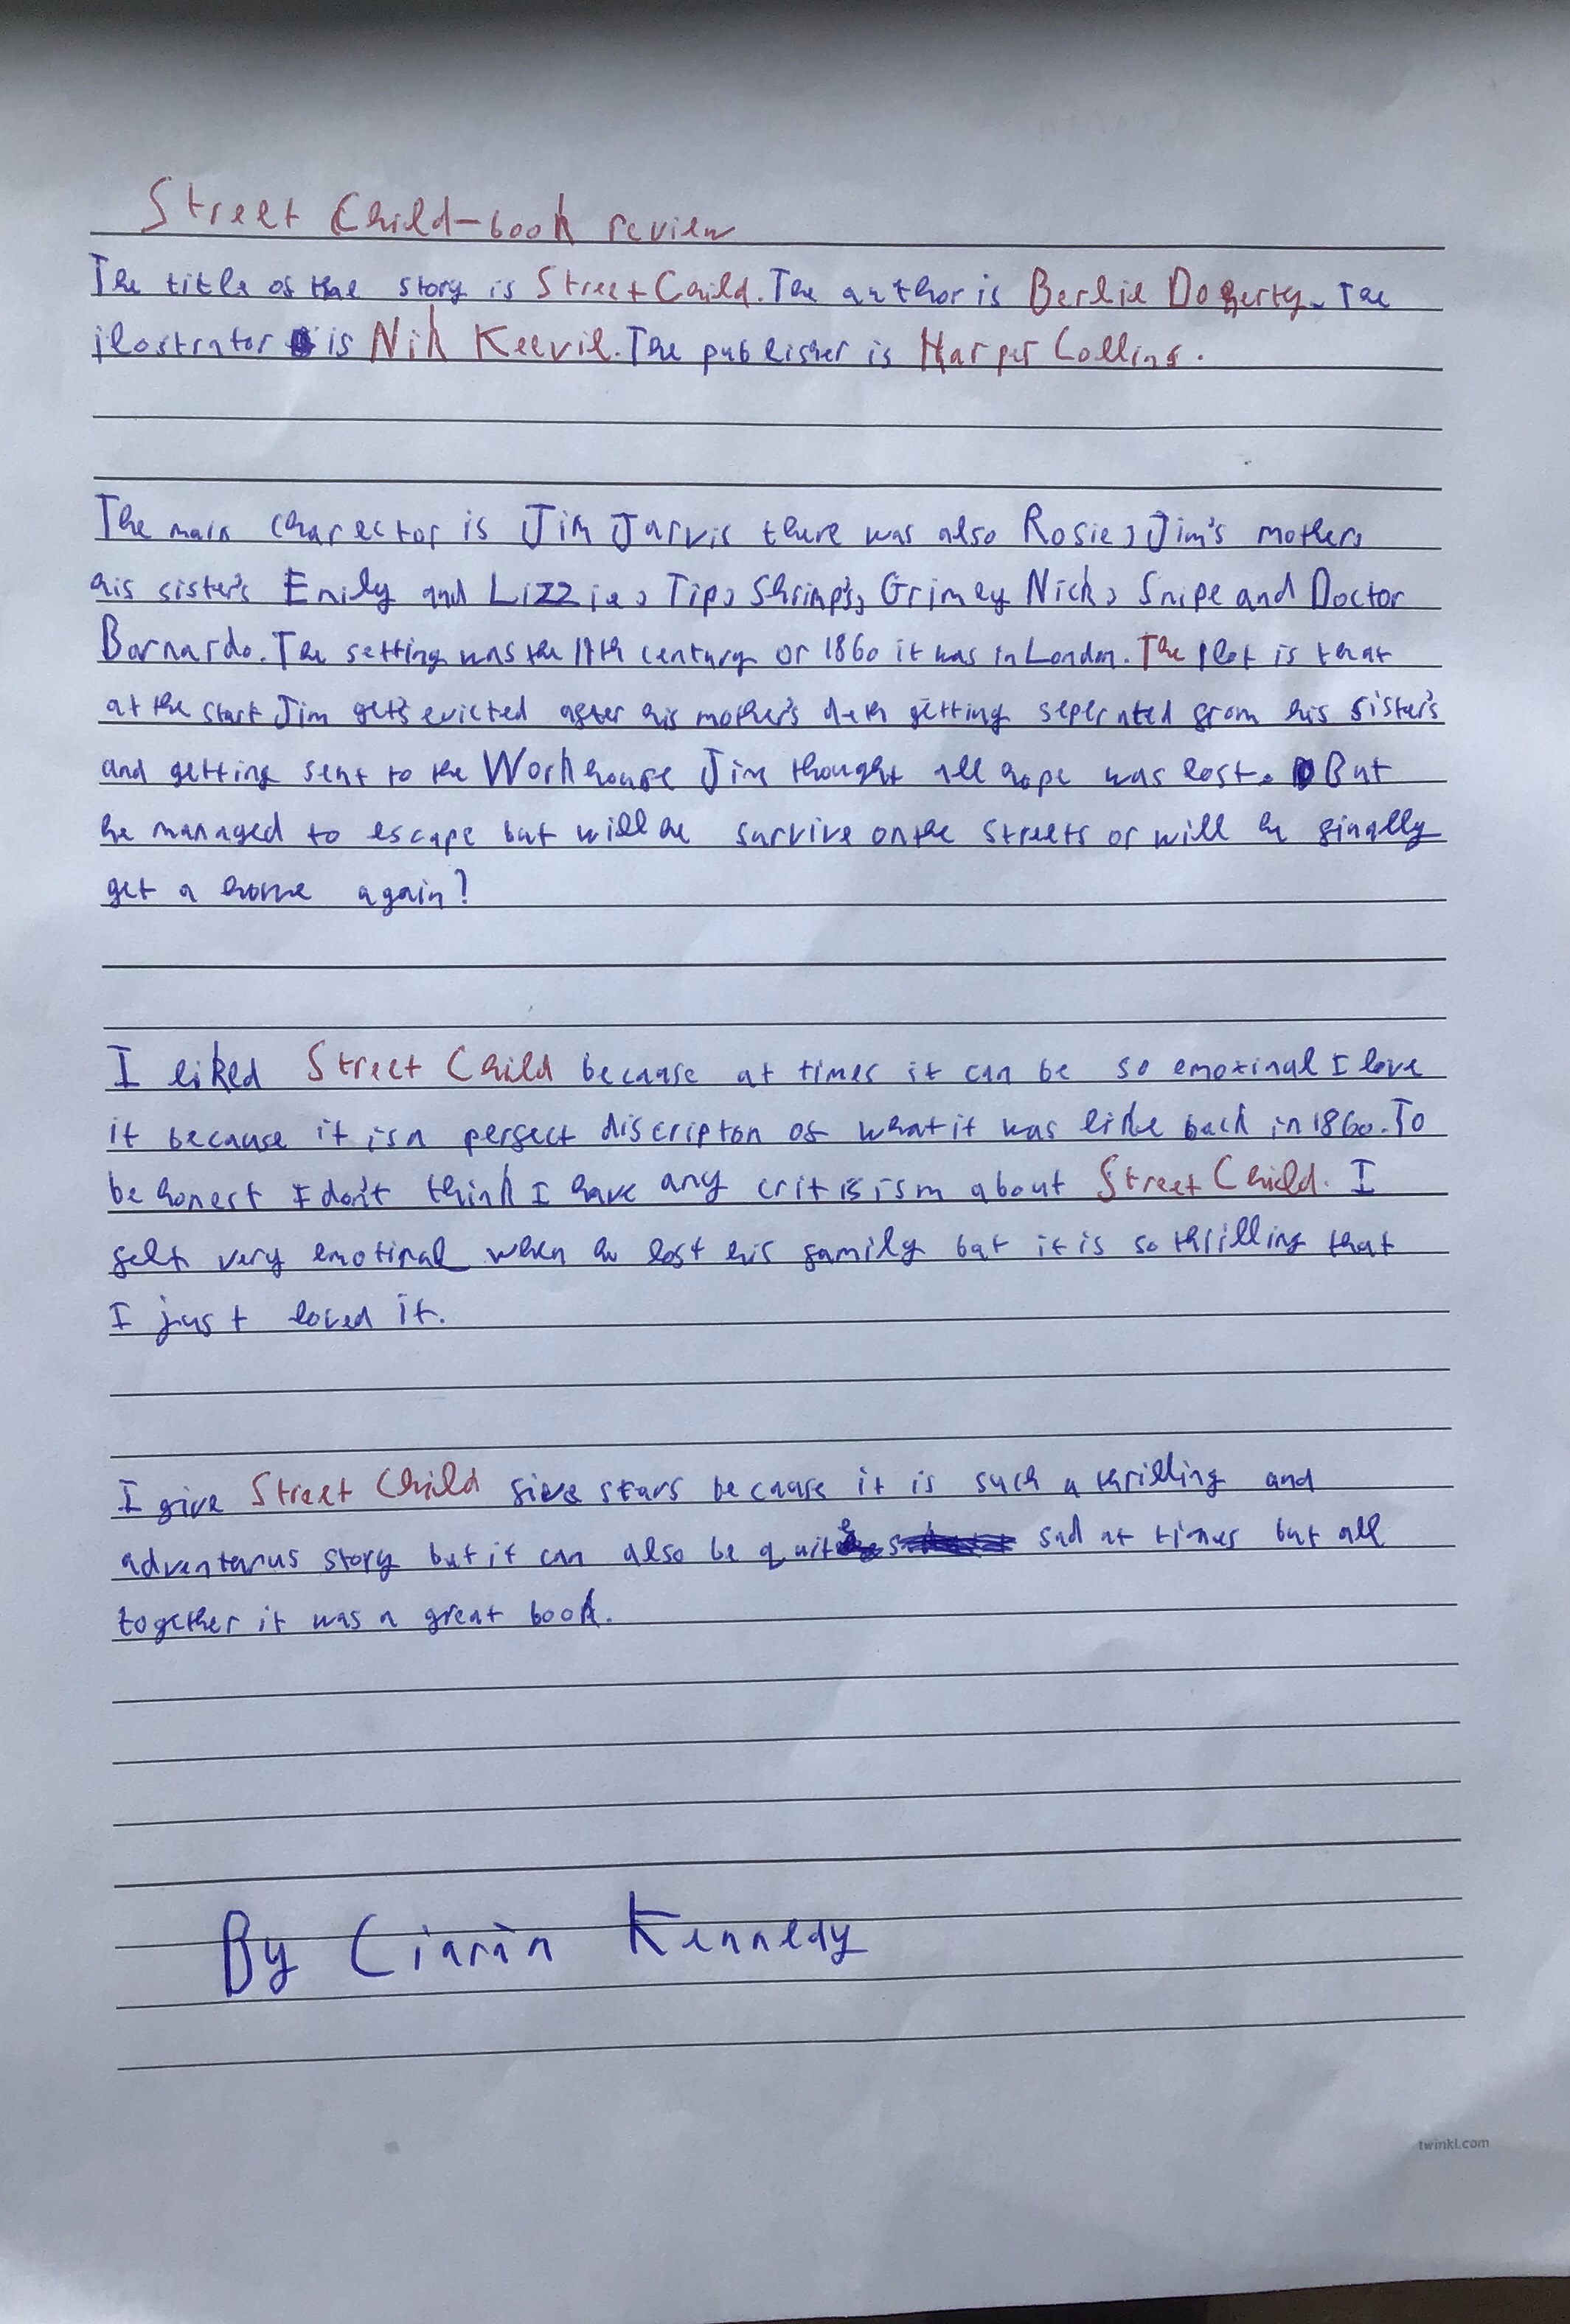 Street Child-book review
The title of the story is Street Child. The author is Berlie Dogherty. The
ilostrator is Nik Keevil. The publisher is Harper Collins.
The main charector is Jim Jarvis there was also Rosie, Jim's mother,
his sister's Emily and Lizzie, Tip, Shrimps, Grimey Nick, Snipe and Doctor
Barnardo. The setting was the century or 1860 it was in London. The plot is that
at the start Jim gets evicted after his mother's deth getting seperated from his sister's
and getting sent to the Workhouse Jim thought all hope was lost. But
he managed to escape but will he survive on the streets or will he finally
get a home again?
I liked Street Child because at times it can be so emotinal I love
it because it is a perfect discripton of what it was like back in 1860. To
be honest I don't think I have any critisism about Street Child. I
felt very emotinal when he lost his family but it is so thrilling that
I just loved it.
I give Street Child five stars because it is such a thrilling and
adventarus story but it can also be quite sad at times but all
together it was a great book.
By Ciaràn Kennedy
twinkl.com